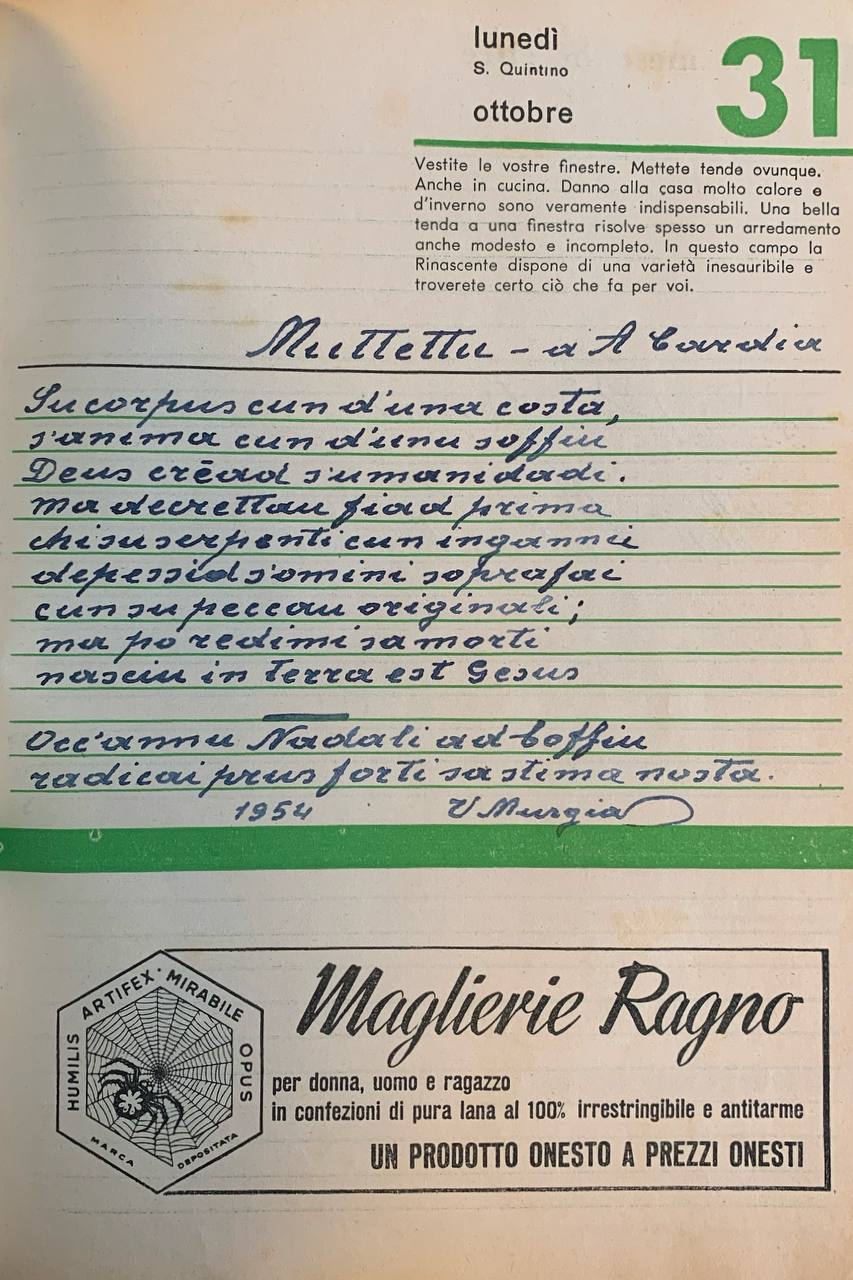 lunedì
S. Quintino
ottobre
31
Vestite le vostre finestre. Mettete tende ovunque.
Anche in cucina. Danno alla casa molto calore e
d'inverno sono veramente indispensabili. Una bella
tenda a una finestra risolve spesso un arredamento
anche modesto e incompleto. In questo campo la
Rinascente dispone di una varietà inesauribile e
troverete certo ciò che fa per voi.
Muttettu - a A Cardia
Su corpus cun d'una costa,
s'anima cun d'unu soffiu
Deus crēad s'umanidadi.
ma decrettau fiad prima
chi su serpenti cun ingannu
depessid s'omini soprafai
cun su peccau originali;
ma po redimi sa morti
nasciu in terra est Gesus
Occ'annu Nadali ad boffiu
radicai prus forti sa stima nosta.
1954 V Murgia
HUMILIS ARTIFEX · MIRABILE OPUS
MARCA DEPOSITATA
Maglierie Ragno
per donna, uomo e ragazzo
in confezioni di pura lana al 100% irrestringibile e antitarme
UN PRODOTTO ONESTO A PREZZI ONESTI